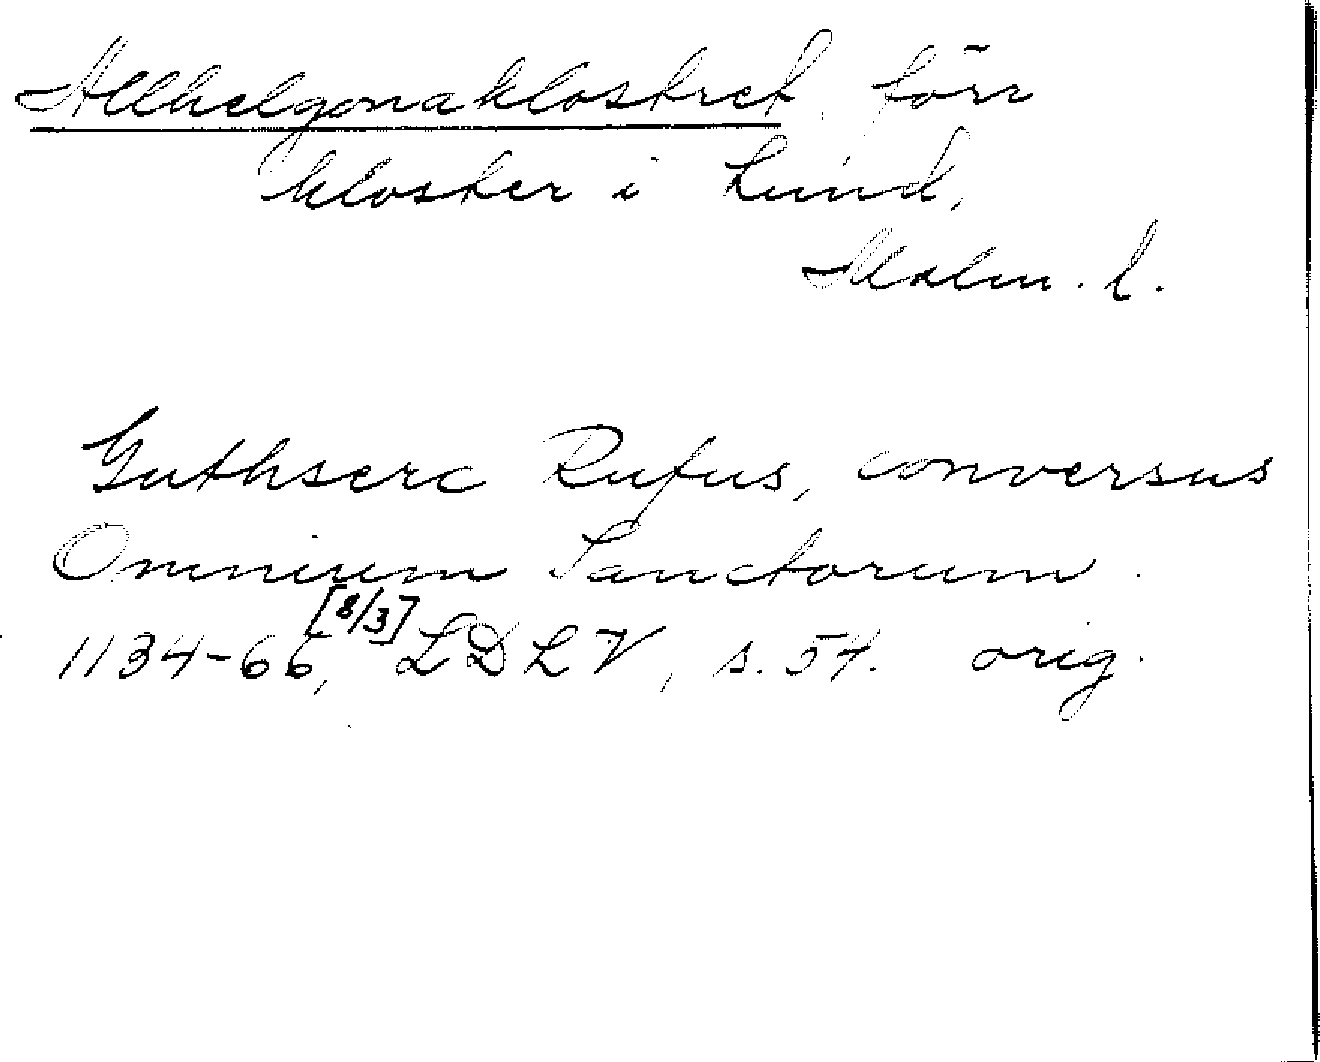 Allhelgonaklostret, förr
kloster i Lund,
Malm. l.
Guthserc Rufus, conversus
Omnium Sanctorum.
[8/3]
1134-66, LDLV, s. 54. orig.